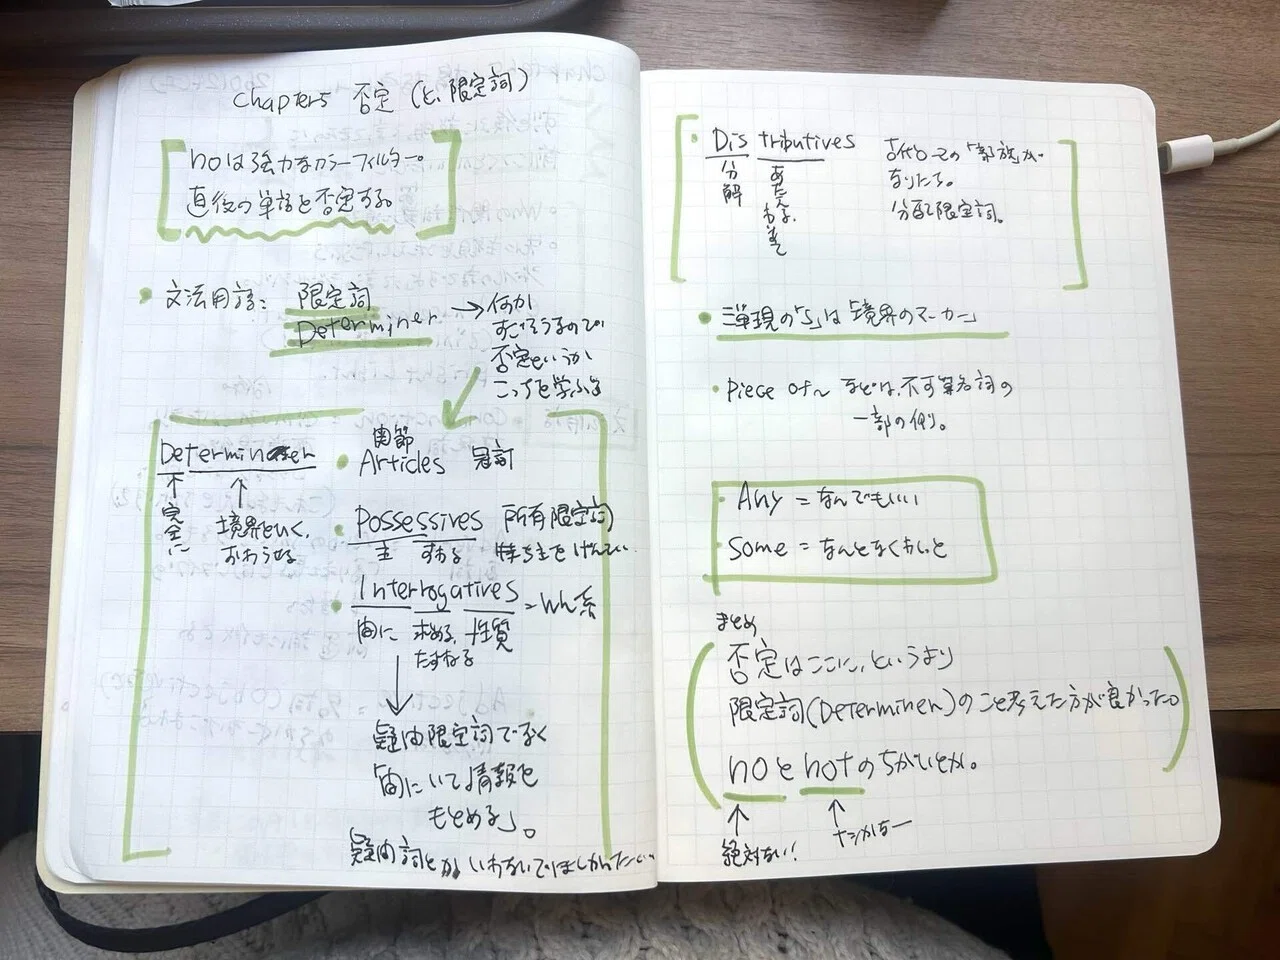 Chapter5 否定(と、限定詞)
noは強力なカラーフィルター。
直後の単語を否定する。
文法用語: 限定詞
Determiner
→何か
すごそうなので
否定というか
こっちを学ぶよ
Determiner
↑ ↑
完全に
境界をひく,
おわらせる
関節
Articles 冠詞
Possessives 所有限定詞
主 すわる 持ち主をげんてい
Interrogatives =Wh系
間に 求める, 性質
たずねる
疑問限定詞でなく
「間にいて情報を
もとめる」。
疑問詞とか いわないでほしかんた
Distributives
分解
あたえ
わる,
古代ローマの「部族」が
なりたち。
分配限定詞。
三単現の「s」は「境界のマーカー」
Piece of〜 などは、不可算名詞の
一部の例。
Any = なんでもいい
Some = なんとなくわしっと
まとめ
否定はここに、というより
限定詞(Determiner)のこと考えた方が良かった。
noとnotのちがいとか。
↑ ↑
絶対ない!